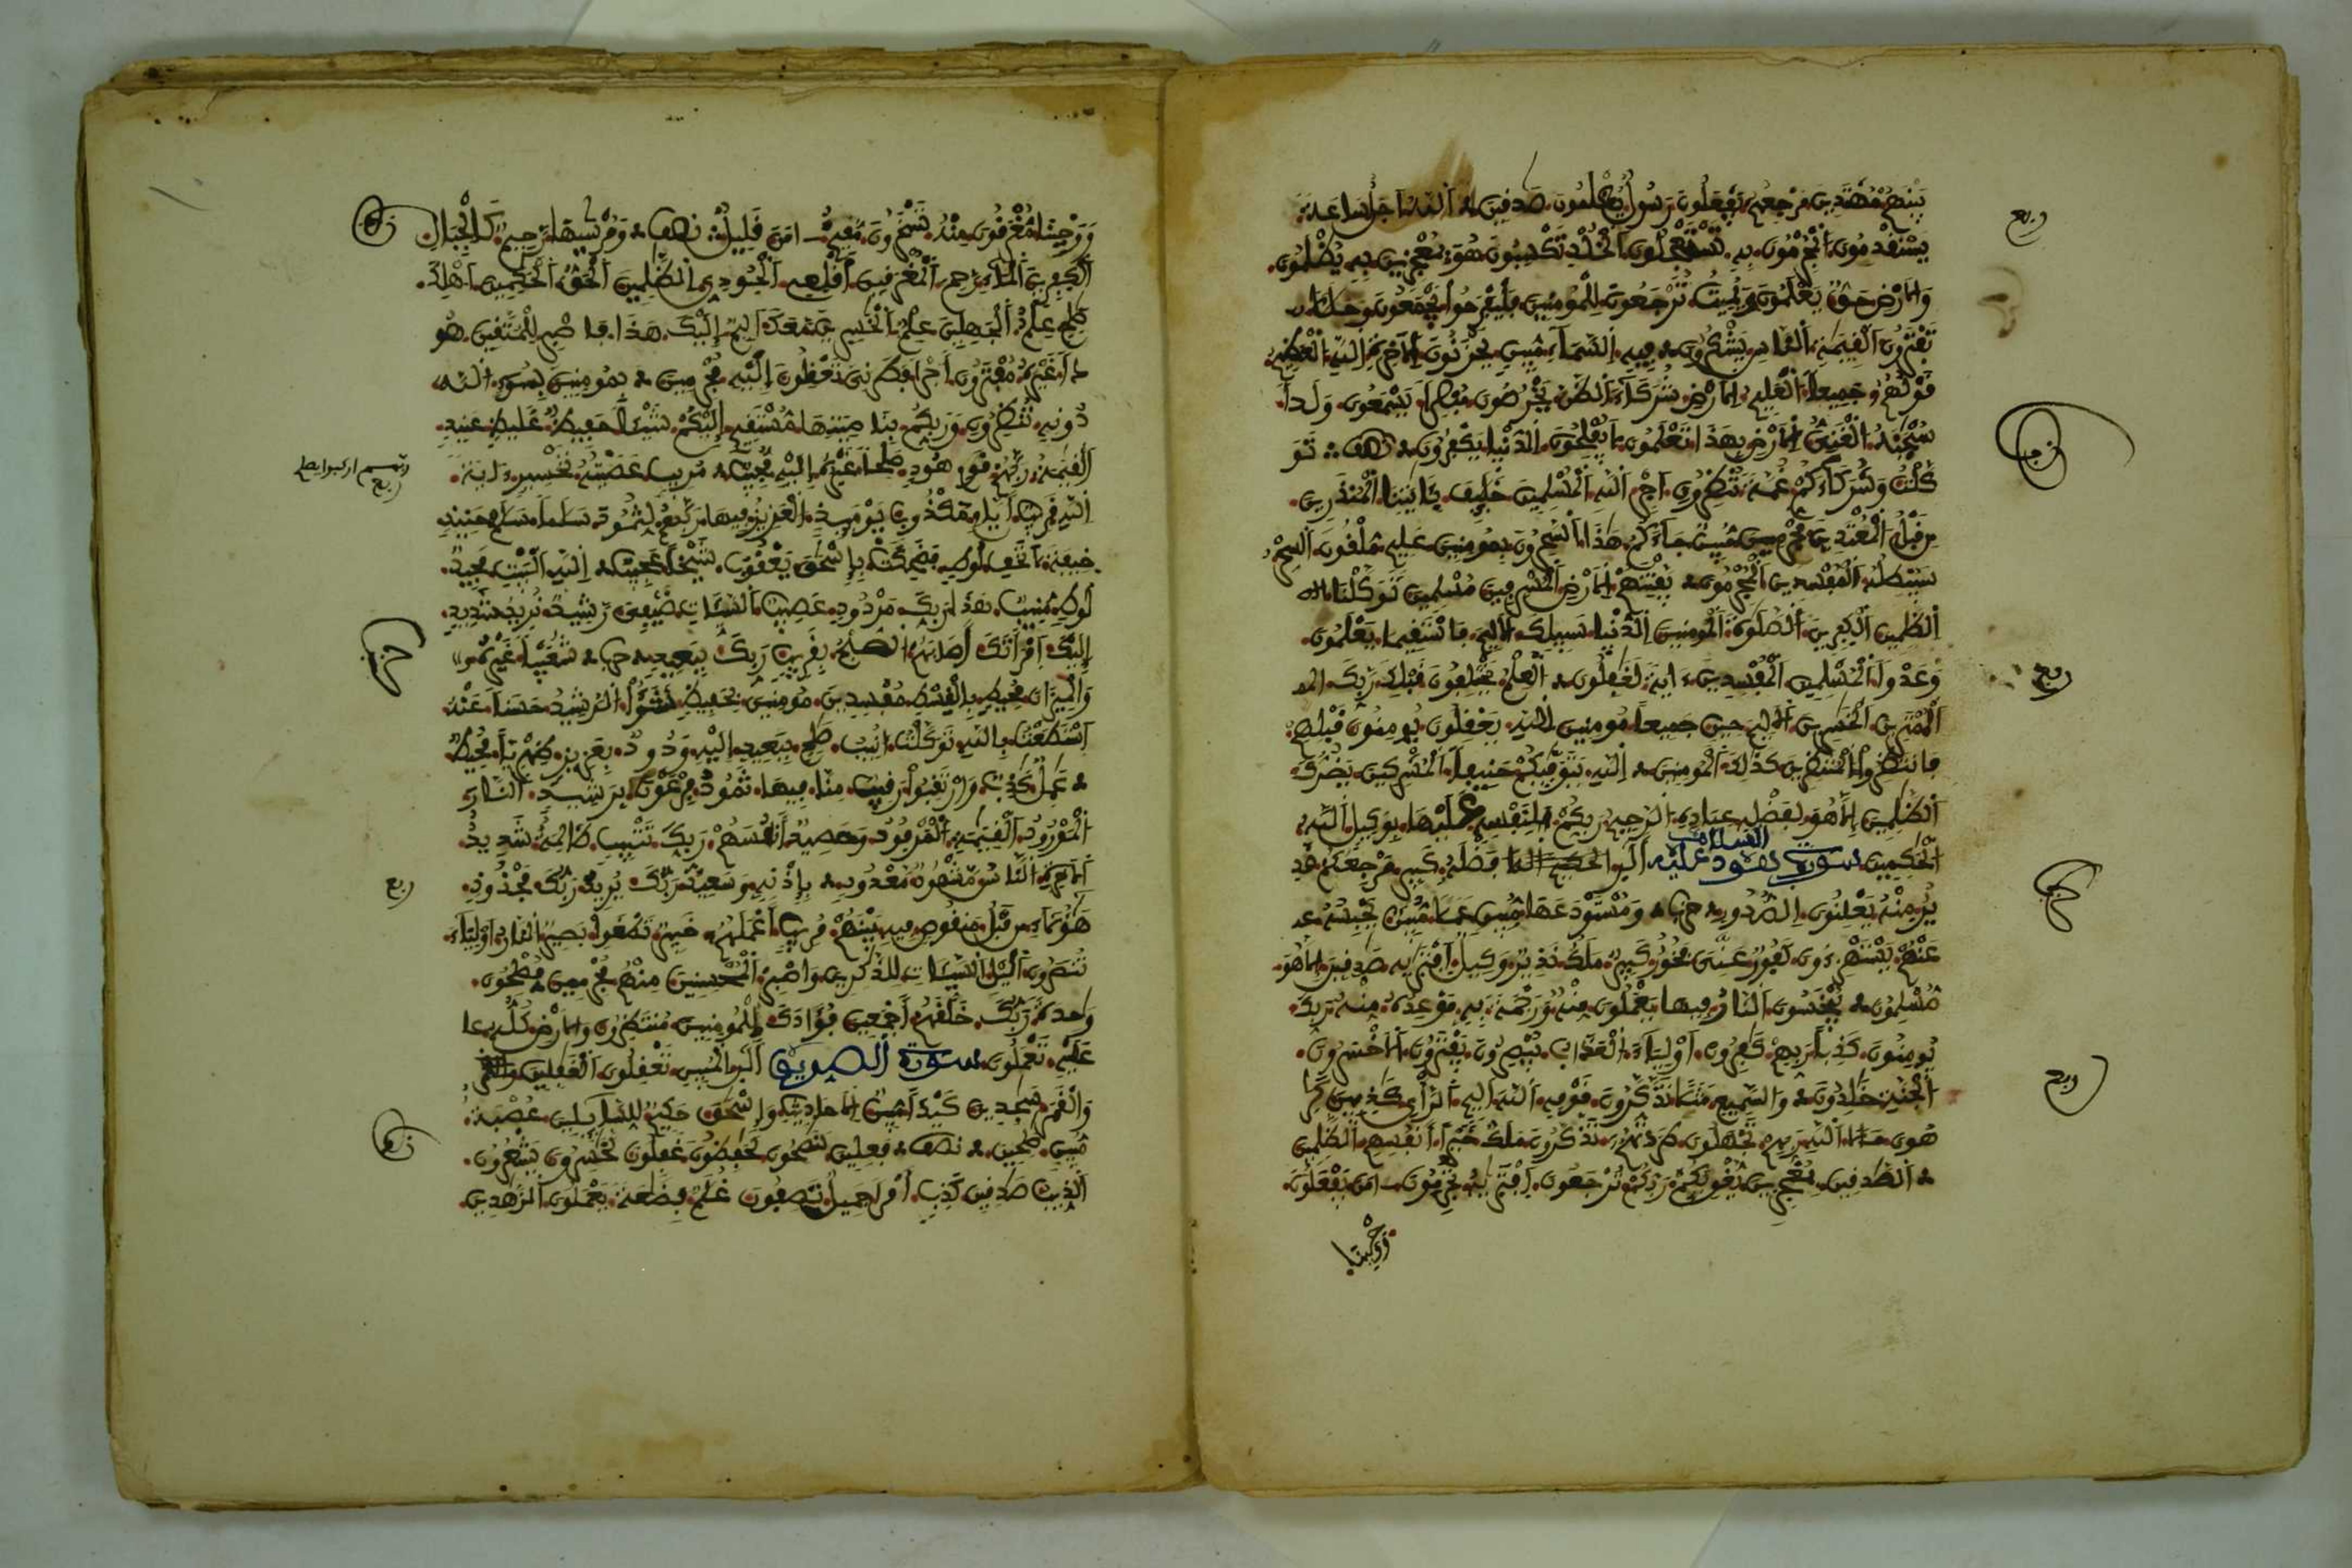 بينهم مهتدين مرجعهم يفعلون رسول يظلمون صدفين الله اجل ساعة
يستقدمون المجرمون به تستعجلون الخلد تكسبون هو بمعجزين به يظلمون
والارض حق يعلمون ويميت ترجعون للمومنين فليفرحوا يجمعون وحللا
تفترون القيمة الناس يشكرون فيه السماء مبين يحزنون الاخرة الله العظيم
قولهم جميعا العليم الارض شركاء الظن يخرصون مبصرا يسمعون ولدا
سبحنه الغني الارض بهذا تعلمون يفلحون الدنيا يكفرون نصف نوح
توكلت وشركاءكم غمة تنظرون اجر الله المسلمين خليف بايتنا المنذرين
من قبل المعتدين مجرمين مبين جاءكم هذا السحرون بمومنين عليم ملقون السحر
سيبطله المفسدين المجرمون يفتنهم الارض المسرفين مسلمين توكلنا
الظلمين الكفرين الصلوة المومنين الدنيا سبيلك الاليم فاستقيما يعلمون
وعدوا المسلمين المفسدين ءاية لغفلون العلم يختلفون قبلك ربك
الممترين الخسرين الاليم حين جميعا مومنين الله يعقلون يومنون قبلهم
فانتظروا المنتظرين كذلك المومنين الله يتوفيكم حنيفا المشركين يضرك
الظلمين الا هو لفضله عباده الرحيم ربكم لنفسه عليها بوكيل الله
الحكمين سورة هود عليه السلام الر فضله كبير مرجعكم قدير
منه يعلنون الصدور حزب ومستودعها مبين عملا مبين يحبسه
عنهم يستهزءون ليئوس كفور عني فخور كبير ملك نذير وكيل افتريه صدقين الا هو
مسلمون يبخسون النار فيها يعملون منه ورحمة به موعده منه ربك
يومنون كذبا ربهم كفرون اولياء العذاب يبصرون يفترون الاخسرون
الجنة خلدون والسميع مثلا تذكرون قومه الله اليم الراي كذبين
هون ملا الله ربهم تجهلون طردتهم تذكرون ملك خيرا انفسهم الظلمين
الصدقين بمعجزين يغويكم ربكم ترجعون افتريه تجرمون امن يفعلون
ووحينا
ربع
حزب
ربع
حزب
ربع
ووحينا مغرقون منه تسخرون مقيم امن قليل نصف ومرسيها رحيم كالجبال
الكفرين الماء رحم المغرقين اقلعي الجودي الظلمين الحق الحكمين اهلك
صلح علم الجهلين علم الخسرين معك اليم اليك هذا فاصبر للمتقين هود
غيره مفترون اجرا فطرني تعقلون اليه مجرمين بمومنين بسوء الله
دونه تنظرون وربكم بناصيتها مستقيم اليكم شيئا حفيظ غليظ عنيد
القيمة ربهم قوم هود صلحا غيره اليه مجيب مريب عصيته تخسير ءاية
الله قريب ايام مكذوب يومئذ العزيز فيها ربهم لثمود سلاما سلام حنيذ
خيفة لا تخف لوط فضحكت باسحق يعقوب شيخا عجيب الله البيت مجيد
لوط منيب هذا ربك مردود عصيب السيئات ضيفي رشيد نريد شديد
اليك امراتك اصابهم الصبح بقريب ربك ببعيد حزب شعيبا غيره
والميزان محيط بالقسط مفسدين مومنين بحفيظ الرشيد حسنا عنه
استطعت بالله توكلت انيب صلح ببعيد اليه ودود بعزيز ظهريا محيط
عمل كذب وارتقبوا رقيب منا فيها ثمود فرعون برشيد النار
المورود القيمة المرفود وحصيد انفسهم ربك تتبيب ظالمة شديد
الاخرة الناس مشهود معدود باذنه وسعيد ربك يريد ربك مجذوذ
هؤلاء من قبل منقوص فيه بينهم مريب اعملهم خبير تطغوا بصير النار اولياء
تنصرون اليل السيئات للذكرين واصبر المحسنين منهم مجرمين مصلحون
وحدة ربك خلقهم اجمعين فؤادك للمومنين منتظرون والارض كله
عليه تعملون سورة الصديق الر المبين تعقلون الغفلين
والقمر سجدين كيدا مبين الاحاديث واسحق حكيم للسايلين عصبة
مبين صلحين نصف فعلين لنصحون لحفظون غفلون لخسرون يشعرون
الذيب صدقين كذب امرا جميل تصفون غلم بضعة يعملون الزهدين
نصف
ربع
حزب
ربع
نصف